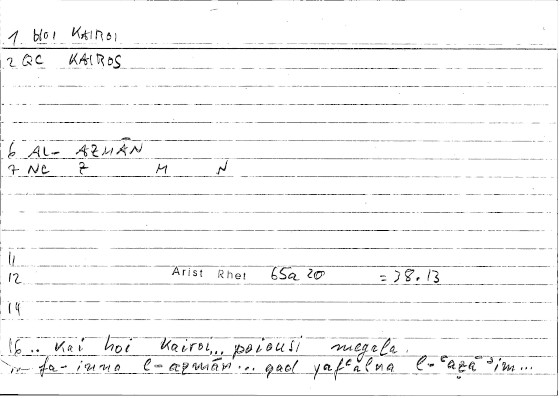 1. hoi KAIROI
2 QC KAIROS
6 AL- AZMĀN
7 NC Z M N
11
12 Arist Rhet 65a 20 = 38.13
14
16 .. kai hoi kairoi... poiousi megala.
fa-inna l-azmān... qad yafʿalna l-ʿaẓāʾim...